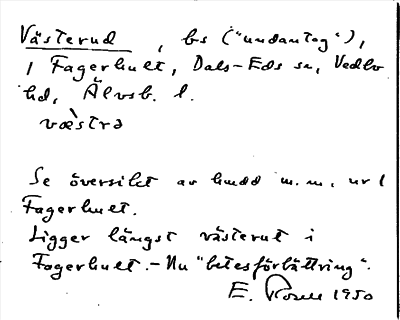 Västerud, bs ("undantog"),
1 Fagerhult, Dals-Eds sn, Vedbo
hd, Älvsb. l.
væ̀strə
Se översikt av hmdd m.m., nr 1
Fagerhult.
Ligger längst västerut i
Fagerhult. - Nu "betesförbättring".
E. 1950